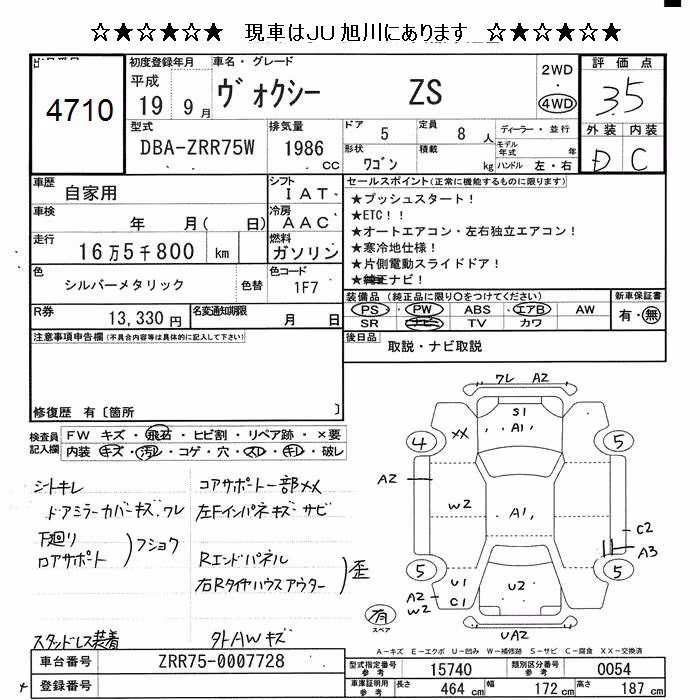 ☆★☆★☆★ 現車はJU旭川にあります ☆★☆★☆★
4710
初度登録年月 平成 19 9 月
車名・グレード ヴォクシー ZS
2WD ・ 4WD
評価点 3.5
外装 内装
D C
型式 DBA-ZRR75W
排気量 1986 CC
ドア 5 定員 8 人
形状 ワゴン 積載 kg
ディーラー・並行
モデル年式 年
ハンドル 左・右
車歴 自家用
シフト IAT
セールスポイント(正常に機能するものに限ります)
★プッシュスタート!
★ETC!!
★オートエアコン・左右独立エアコン!
★寒冷地仕様!
★片側電動スライドドア!
★純正ナビ!
車検 年 月( 日)
冷房 AAC
走行 16万5千800 km
燃料 ガソリン
色 シルバーメタリック 色替
色コード 1F7
装備品(純正品に限り○をつけてください)
PS ・ PW ・ ABS ・ エアB ・ AW
SR ナビ ・ TV ・ カワ
新車保証書 有・無
R券 13,330 円
名変通知期限 月 日
注意事項申告欄(不具合内容等は具体的に記入して下さい)
後日品 取説・ナビ取説
修復歴 有〔箇所 〕
検査員記入欄
FW キズ・飛石・ヒビ割・リペア跡・×要
内装 キズ・汚レ・コゲ・穴・スレ・キレ・破レ
シートキレ
ドアミラーカバーキズ、ワレ
下廻り
ロアサポート
フショク
スタッドレス装着
コアサポート一部××
左Fインパネキズサビ
Rエンドパネル
右Rタイヤハウスアウター
歪
外AWキズ
ワレ A2
S1
A1
XX
4
5
A2
W2
A1
C2
A3
5
5
U1
C1
U2
A2
W2
有
スペア
UA2
A-キズ E-エクボ U-凹み W-補修跡 S-サビ C-腐食 XX-交換済
車台番号 ZRR75-0007728
登録番号
型式指定番号 参考 15740
類別区分番号 参考 0054
車庫証明用 参考 長さ 464 cm 幅 172 cm 高さ 187 cm